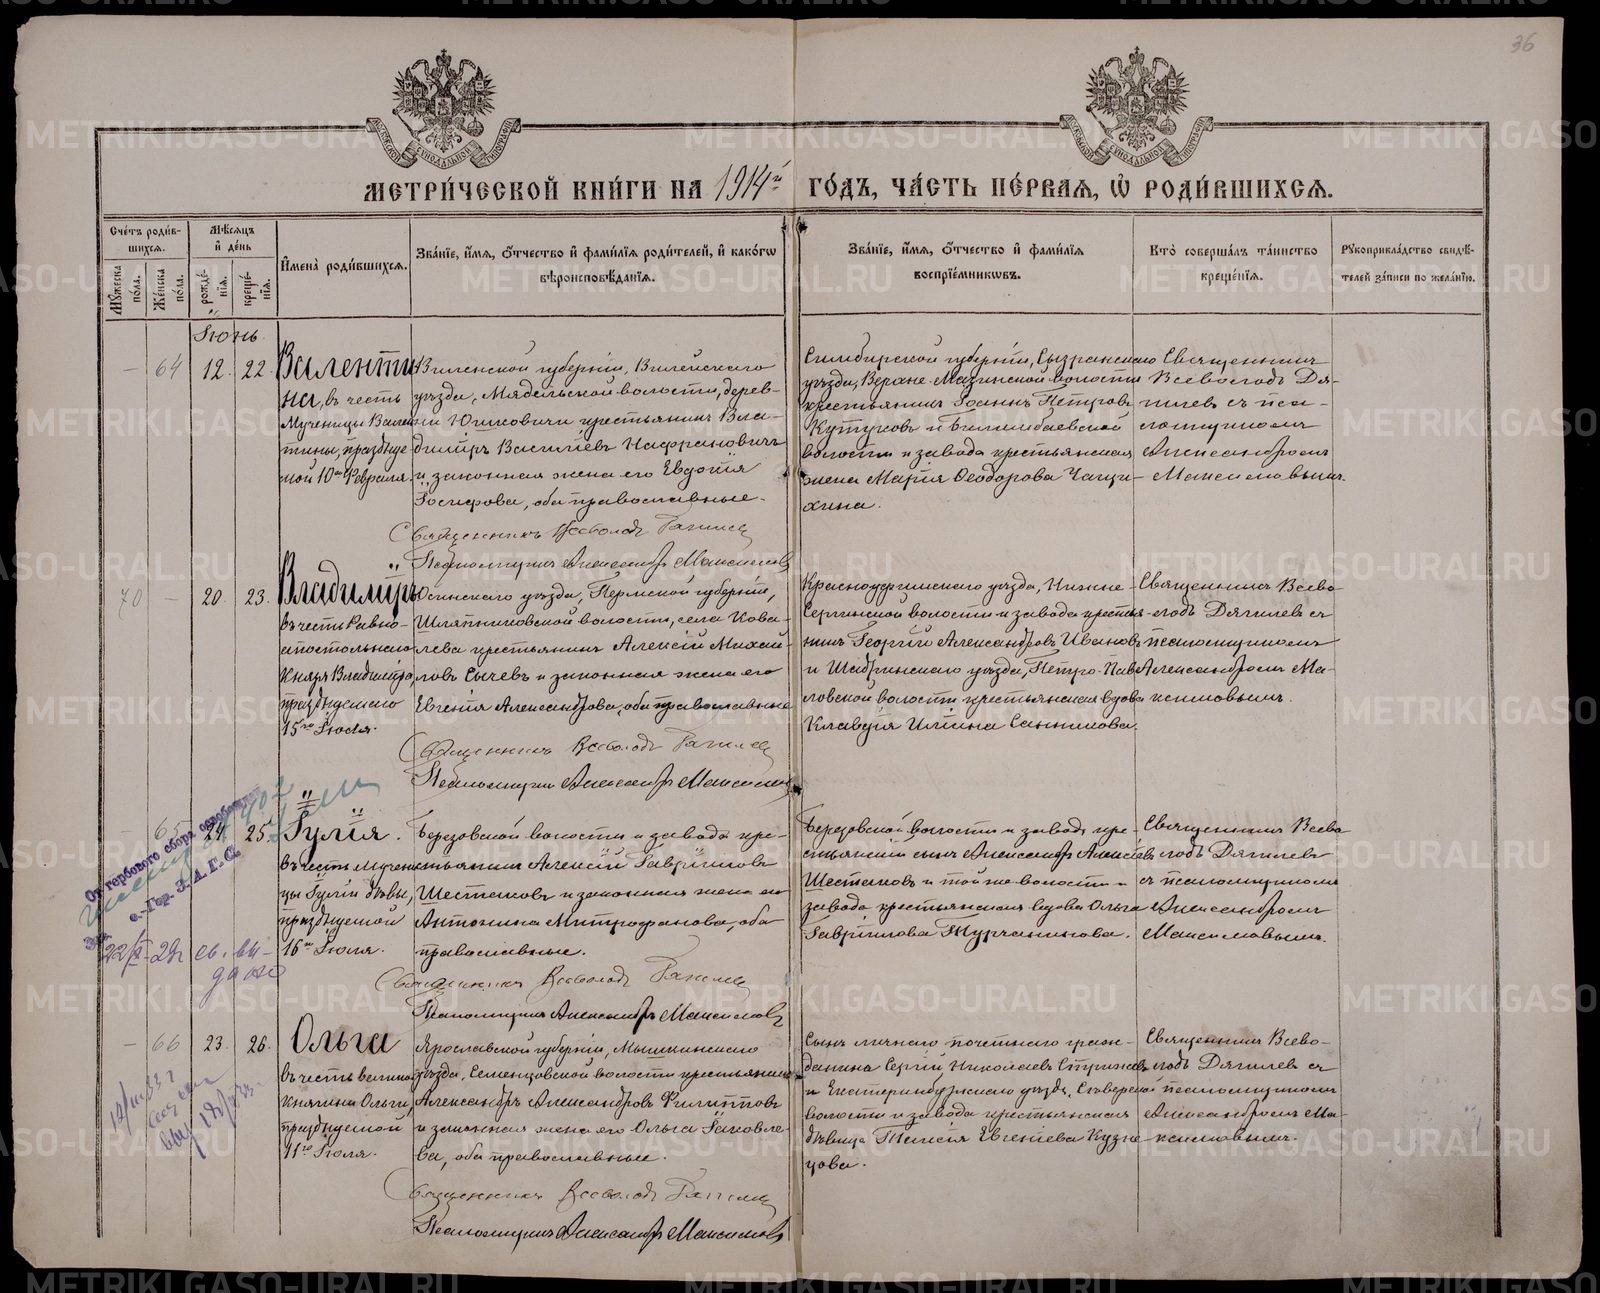 36
МЕТРИ́ЧЕСКОЙ КНИ́ГИ НА 1914й ГО́ДЪ, ЧА́СТЬ ПЕ́РВАЯ, Ѡ РОДИ́ВШИХСЯ.
Сче́тъ роди́вшихся.
Мꙋ́жеска по́ла.
Же́нска по́ла.
Мѣ́сяцъ и де́нь
рожде́нїя.
креще́нїя.
И҆мена̀ роди́вшихся.
Зва́нїе, и҆́мя, ѻ҆́тчество и҆ фами́лїя роди́телей, и҆ како́гѡ
вѣроисповѣ́данїя.
Зва́нїе, и҆́мя, ѻ҆́тчество и҆ фами́лїя
воспрїе́мникѡвъ.
Кто̀ соверша́лъ та́инство
креще́нїя.
Рꙋкоприкла́дство свидѣ́-
телей за́писи по жела́нїю.
Іюнь.
— 64 12. 22.
Валенти
на, въ честь
Мученицы Вален
тины, празднуе
мой 10го Февраля.
Виленской губерніи, Вилейскаго
уѣзда, Мядельской волости, дерев-
крестьянинъ Вла-
димiръ Василіевъ
и законная жена его Евдокія
Іосифова, оба православные.
Священникъ Всеволодъ Дягилевъ
Псаломщикъ Александръ Максимовъ
Симбирской губерніи, Сызранскаго
уѣзда, волости
крестьянинъ Іоаннъ Петровъ
Кутузовъ и Билимбаевской
волости и завода крестьянская
жена Марія Ѳеодорова Чащи-
хина.
Священникъ
Всеволодъ Дя-
гилевъ съ пса-
ломщикомъ
Александромъ
Максимовымъ.
70 — 20. 23.
Владимiръ
въ честь Равно-
апостольнаго
Князя Владимiра,
празднуемаго
15го Іюля.
Осинскаго уѣзда, Пермской губерніи,
волости, села Кова-
лева крестьянинъ Алексій Михай-
ловъ Сычевъ и законная жена его
Евгенія Александрова, оба православные
Священникъ Всеволодъ Дягилевъ
Псаломщикъ Александръ Максимовъ
Красноуфимскаго уѣзда, Нижне-
Сергинской волости и завода крестья-
нинъ Георгій Александровъ Ивановъ
и Шадринскаго уѣзда, Петро-Пав
ловской волости крестьянская вдова
Клавдія Ильина Санникова.
Священникъ Всево-
лодъ Дягилевъ съ
псаломщикомъ
Александромъ Ма-
ксимовымъ.
— 65 24. 25.
Іулія.
въ честь Мучени
цы Іуліи дѣвы,
празднуемой
16го Іюля.
Березовской волости и завода кре-
стьянинъ Алексій Гавріиловъ
Шестаковъ и законная жена его
Антонина Митрофанова, оба
православные.
Священникъ Всеволодъ Дягилевъ
Псаломщикъ Александръ Максимовъ
Березовской волости и завода кре-
стьянскій сынъ Александръ Алексіевъ
Шестаковъ и той же волости и
завода крестьянская вдова Ольга
Гавріилова Турчанинова.
Священникъ Всево
лодъ Дягилевъ
съ псаломщикомъ
Александромъ
Максимовымъ.
От гербового сбора освобожден
— 66 23. 26.
Ольга
въ честь великой
княгини Ольги,
празднуемой
11го Іюля.
Ярославской губерніи, Мышкинскаго
уѣзда, Семенцовской волости крестьянинъ
Александръ Александровъ Филипповъ
и законная жена его Ольга Яковле-
ва, оба православные.
Священникъ Всеволодъ Дягилевъ
Псаломщикъ Александръ Максимовъ
Сынъ личнаго почетнаго граж-
данина Сергій Николаевъ Стрижевъ
и Екатеринбургскаго уѣзда,
волости и завода крестьянская
дѣвица Таисія Евгеніева Кузне-
цова.
Священникъ Всево-
лодъ Дягилевъ съ
псаломщикомъ
Александромъ Ма-
ксимовымъ.
METRIKI.GASO-URAL.RU